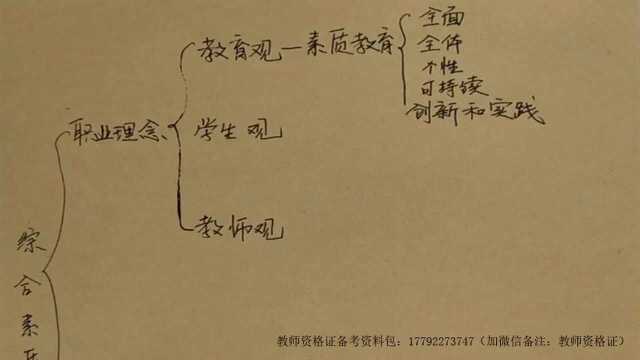 全面
全体
教育观—素质教育
个性
可持续
创新和实践
职业理念
学生观
教师观
综合素
教师资格证备考资料包：17792273747（加微信备注：教师资格证）